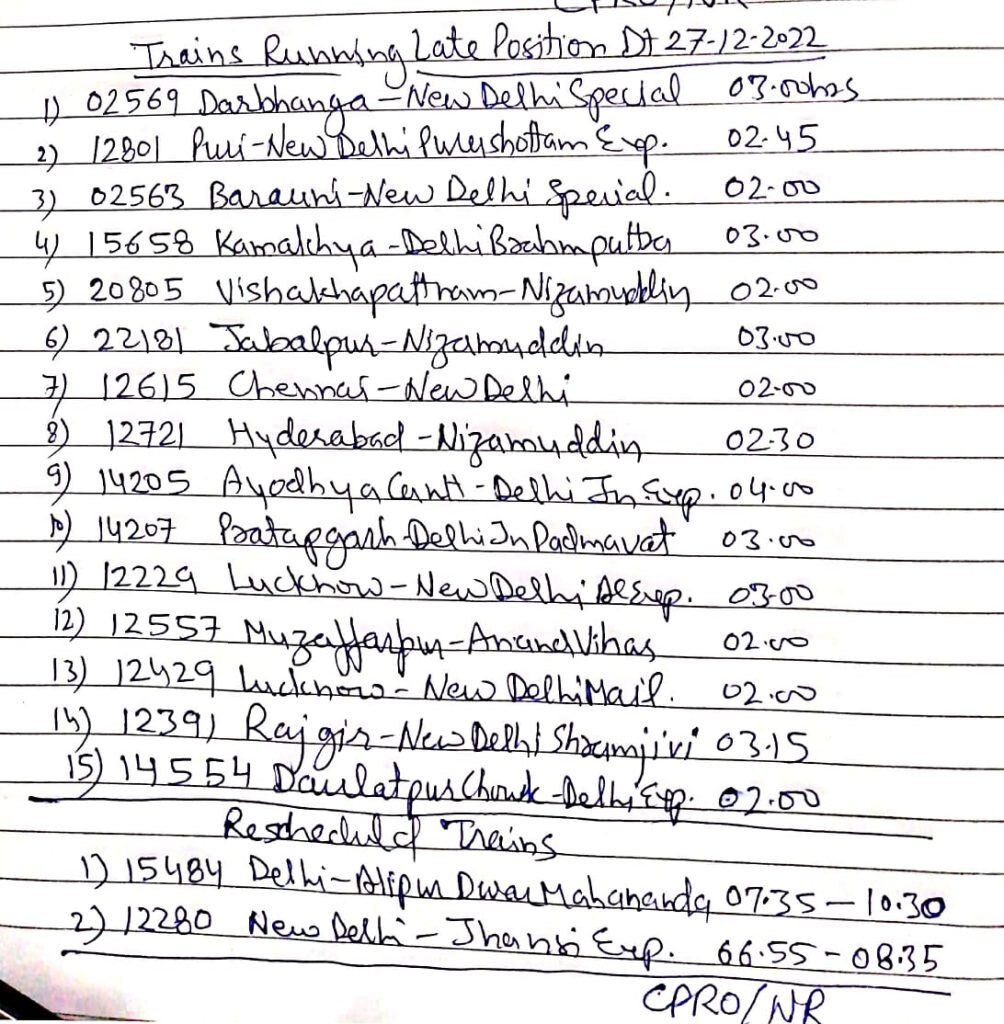 CPRO/NR
Trains Running Late Position Dt 27-12-2022
1) 02569 Darbhanga-New Delhi Special 03.00hrs
2) 12801 Puri-New Delhi Purushottam Exp. 02.45
3) 02563 Barauni-New Delhi Special. 02.00
4) 15658 Kamakhya-Delhi Brahmputra 03.00
5) 20805 Vishakhapattnam-Nizamuddin 02.00
6) 22181 Jabalpur-Nizamuddin 03.00
7) 12615 Chennai-New Delhi 02.00
8) 12721 Hyderabad-Nizamuddin 02.30
9) 14205 Ayodhya Cantt-Delhi Jn Exp. 04.00
10) 14207 Pratapgarh-Delhi Jn Padmavat 03.00
11) 12229 Lucknow-New Delhi Exp. 03.00
12) 12557 Muzaffarpur-Anand Vihar 02.00
13) 12429 Lucknow-New Delhi Mail. 02.00
14) 12391 Rajgir-New Delhi Shramjivi 03.15
15) 14554 Daulatpur Chowk-Delhi Exp. 02.00
Rescheduled Trains
1) 15484 Delhi-Alipur Dwar Mahananda 07.35-10.30
2) 12280 New Delhi-Jhansi Exp. 66.55-08.35
CPRO/NR